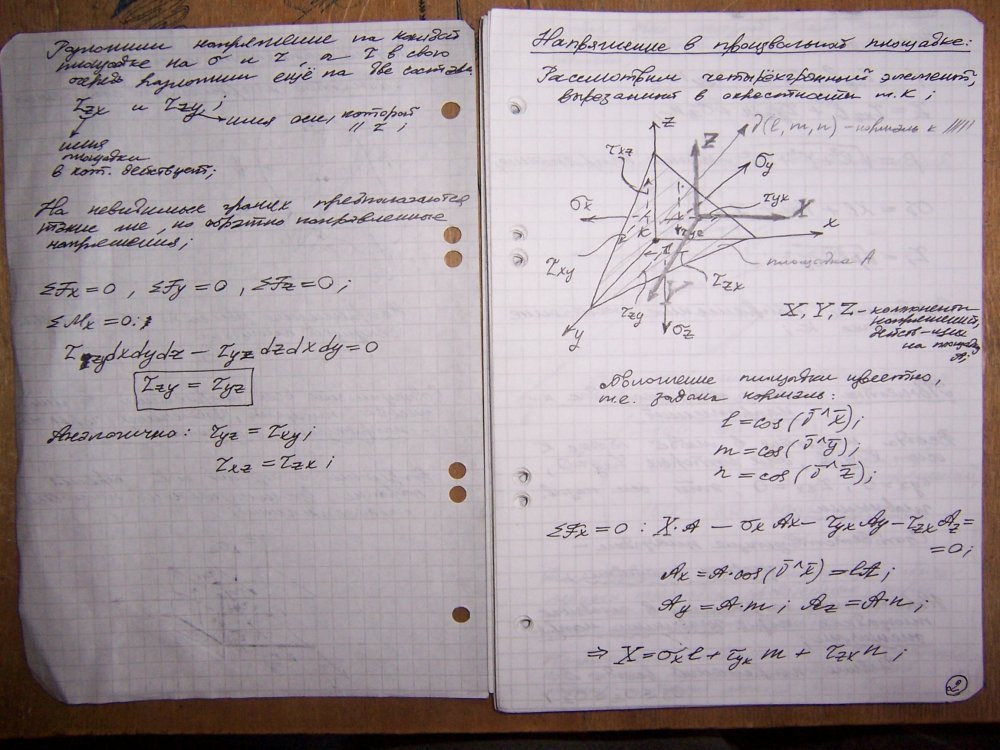 Разложим напряжение на каждой
площадке на σ и τ, а τ в свою
очередь разложим ещё на две составл.
τzx и τzy;
имя оси, которой
// τ;
имя
площадки
в кот. действует;
На невидимых гранях предполагаются
такие же, но обратно направленные
напряжения;
ΣFx = 0, ΣFy = 0, ΣFz = 0;
ΣMx = 0:
τzy dxdydz − τyz dzdxdy = 0
τzy = τyz
Аналогично: τyx = τxy;
τxz = τzx;
Напряжение в произвольной площадке:
Рассмотрим четырёхгранный элемент,
вырезанный в окрестности т. К;
z
Z
ν̄(l, m, n) – нормаль к /////
τxz
σy
τyx
σx
X
x
K
τyz
площадка A
τxy
τzx
Y
τzy
σz
y
X, Y, Z – компоненты
напряжений,
действ-щих
на площадку
A;
Положение площадки известно,
т.е. задана нормаль:
l = cos(ν̄^x̄);
m = cos(ν̄^ȳ);
n = cos(ν̄^z̄);
ΣFx = 0 : X·A − σx Ax − τyx Ay − τzx Az =
= 0;
Ax = A·cos(ν̄^x̄) = lA;
Ay = A·m; Az = A·n;
⇒ X = σx l + τyx m + τzx n;
2